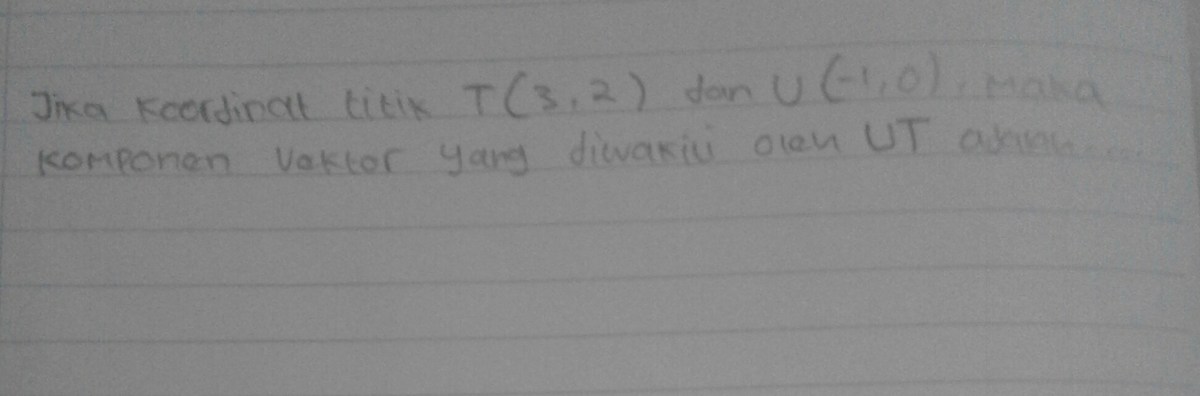 Jika Koordinat titik T(3,2) dan U(-1,0), Maka
Komponen Vektor yang diwakili oleh UT adalah.....